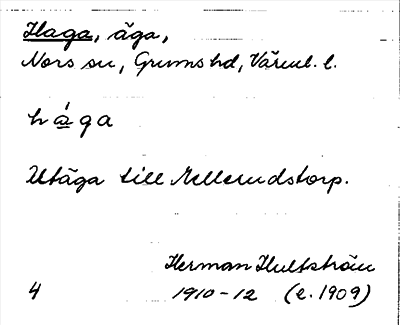 Haga, äga,
Nors sn, Grums hd, Värml. l.
hága
Utäga till Mellerudstorp.
Herman Hultström
4 1910-12 (e. 1909)